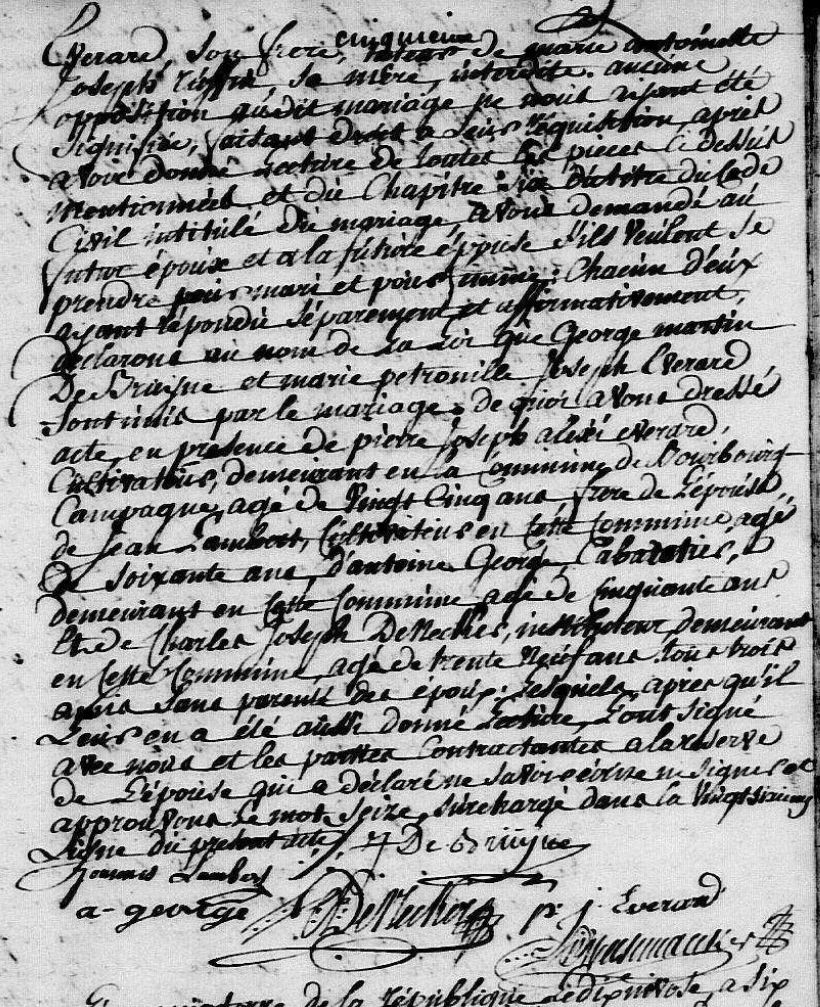 Everard son frere, cinquieme de marie antoinette
Joseph sa mère, interdite. aucune
opposition audit mariage ne nous ayant été
signifiée, faisant droit a leur réquisition, après
avoir donné Lecture de toutes les pieces ci dessus
mentionnées et du Chapitre six du titre du Code
Civil intitulé du mariage, avons demandé au
futur époux et a la future épouse s'ils veulent se
prendre pour mari et pour femme: Chacun d'eux
ayant répondu séparement et affirmativement,
déclarons au nom de La Loi que George martin
De Bruyne et marie petronille Joseph Everard
sont unis par le mariage: de quoi avons dressé
acte, en presence de pierre Joseph alexi everard,
Cultivateur, demeurant en La Commune de Bourbourg
Campagne, agé de vingt Cinq ans frere de L'épouse,
de Jean Lambert, Cultivateur en Cette Commune, agé
de soixante ans, d'antoine George, Cabaretier,
demeurant en Cette Commune agé de cinquante ans
Et de Charles Joseph instituteur, demeurant
en Cette Commune, agé de trente Neuf ans tous trois
amis sans parenté des époux: Lesquels, apres qu'il
Leur en a été aussi donné Lecture, L'ont signé
avec nous et les parties Contractantes a la reserve
de L'épouse qui a déclaré ne savoir écrire ni signer et
approuvons Le mot seize surchargé dans la vingt sixieme
Ligne du présent acte.
De Bruyne
Joannes Lambert
a - george
p. j. Everard
de la république Le dix nivose, a six